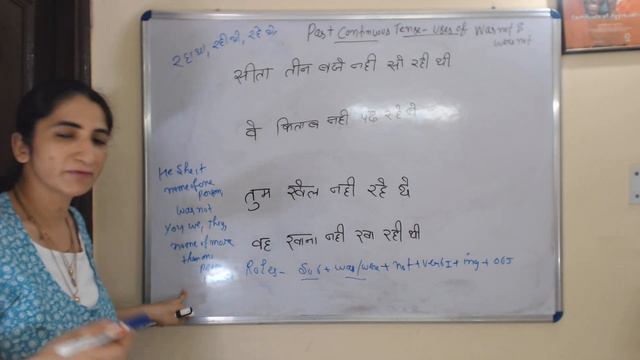 Past Continuous Tense - uses of Was not &
were not
रहा था, रही थी, रहे थे
सीता तीन बजे नही सो रही थी
वे किताब नही पढ रहे थे
तुम खेल नही रहे थे
वह खाना नही खा रही थी
He She, it
name of one
person
was not
You, we, They
name of more
than one
person
Rules- Sub + was/were + not + verb I + ing + obj